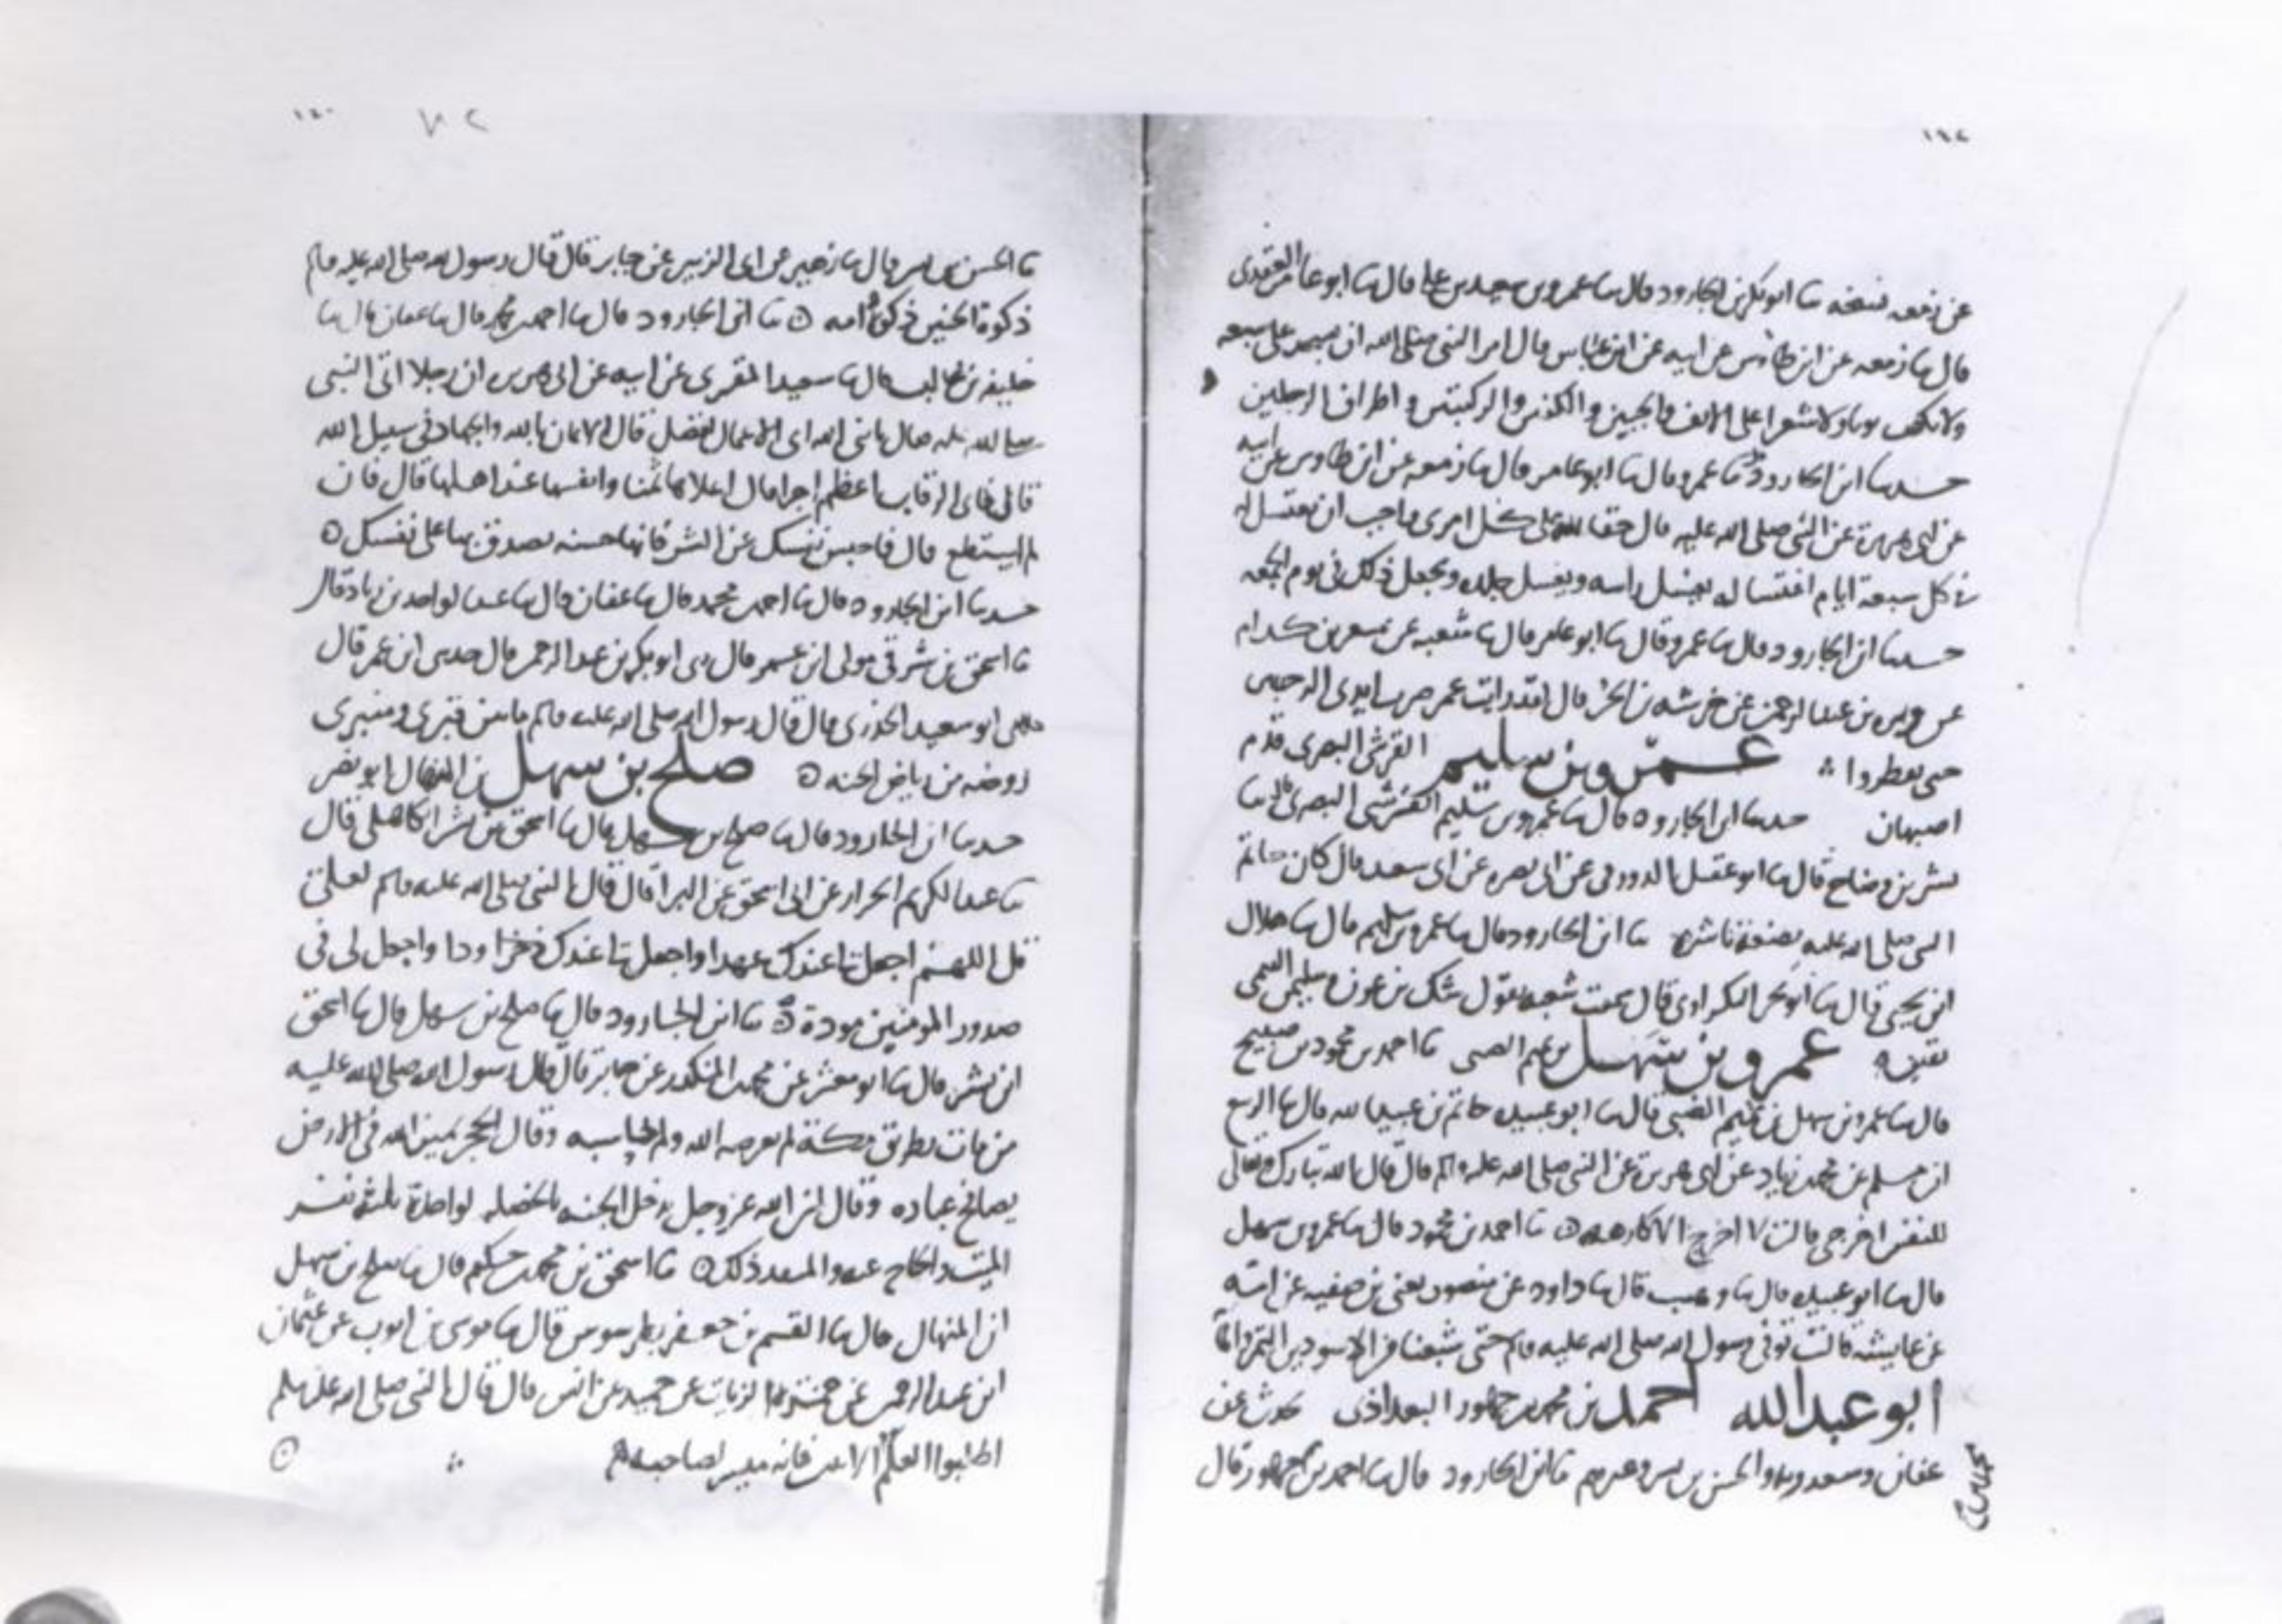 عن زمعه نسخه ثنا ابو بكر بن الجارود قال ثنا عمرو بن سعيد بن علي قال ثنا ابو عامر العقدي
قال ثنا زمعه عن ابن طاوس عن ابيه عن ابن عباس قال امر النبي صلى الله ان يسجد على سبعه
ولا يكف ثوبا ولا شعرا على الانف والجبين والكفين والركبتين و اطراف الرجلين
حدثنا ابن الجارود ثنا عمرو قال ثنا ابو عامر قال ثنا زمعه عن ابن طاوس عن ابيه
عن ابي هريرة عن النبي صلى الله عليه قال حقا لله على كل امرى واجب ان يغتسل لله
في كل سبعة ايام اغتساله يغسل راسه ويغسل جلده ويجعل ذلك في يوم الجمعه
حدثنا ابن الجارود قال ثنا عمرو قال ثنا ابو عامر قال ثنا شعبه عن مسعر بن كدام
عن وبره بن عبد الرحمن عن خرشه بن الحر قال لقد رايت عمر ضرب ايدي الرجبيين
حتى يفطروا عمرو بن سليم القرشي البصري قدم
اصبهان حدثنا ابن الجارود قال ثنا عمرو بن سليم القرشي البصري قال ثنا
بشر بن وضاح قال ثنا ابو عقيل الدورقي عن ابي نضره عن ابي سعيد قال كان خاتم
النبي صلى الله عليه بضعة ناشزه ثنا ابن الجارود قال ثنا عمرو بن سليم قال ثنا هلال
ابن يحيى قال ثنا ابو بحر البكراوي قال سمعت شعبه يقول شك بن عون وسليمن التيمي
يقين عمرو بن سهل بن تميم الضبي ثنا احمد بن محمود بن صبيح
قال ثنا عمرو بن سهل بن تميم الضبي قال ثنا ابو عبيده حاتم بن عبيد الله قال ثنا الربيع
ابن مسلم عن محمد بن زياد عن ابي هريرة عن النبي صلى الله عليه وسلم قال قال الله تبارك وتعالى
للنفس اخرجي قالت لا اخرج الا كارهه ثنا احمد بن محمود قال ثنا عمرو بن سهل
قال ثنا ابو عبيده قال ثنا وهيب قال ثنا داود عن منصور يعني بن صفيه عن امه
عن عايشه قالت توفي رسول الله صلى الله عليه وسلم حتى شبعنا من الاسودين التمر والما
ابو عبد الله احمد بن محمد بن جمهور البغداذي حدث عن
عفان وسعدويه والحسن بن بشر وغيرهم ثنا ابن الجارود قال ثنا احمد بن جمهور قال
ثنا الحسن بن بشر قال ثنا زهير عن ابي الزبير عن جابر قال قال رسول الله صلى الله عليه وسلم
ذكوة الجنين ذكوة امه ثنا ابن الجارود قال ثنا احمد بن محمد قال ثنا عفان قال ثنا
خليفه بن غالب قال ثنا سعيد المقبري عن ابيه عن ابي هريره ان رجلا اتى النبي
صلى الله عليه فقال يا نبي الله اي الاعمال افضل قال الايمان بالله والجهاد في سبيل الله
قال فاي الرقاب اعظم اجرا قال اعلاها ثمنا وانفسها عند اهلها قال فان
لم استطع قال فاحبس نفسك عن الشر فانها حسنه تصدق بها على نفسك
حدثنا ابن الجارود قال ثنا احمد بن محمد قال ثنا عفان قال ثنا عبد الواحد بن زياد قال
ثنا اسحق بن شرقي مولى ابن عمر قال حدثني ابو بكر بن عبد الرحمن قال حدثني ابن عمر قال
حدثني ابو سعيد الخدري قال قال رسول الله صلى الله عليه وسلم ما بين قبري ومنبري
روضه من رياض الجنه صلح بن سهل بن المنهال ابو نصر
حدثنا ابن الجارود قال ثنا صلح بن سهل قال ثنا اسحق بن بشر الكاهلي قال
ثنا عبد الكريم الخزاز عن ابي اسحق عن البرا قال قال النبي صلى الله عليه وسلم لعلي
قل اللهم اجعل لنا عندك عهدا واجعل لنا عندك ذخرا وودا واجعل لي في
صدور المومنين مودة ثنا ابن الجارود قال ثنا صلح بن سهل قال ثنا اسحق
ابن بشر قال ثنا ابو معشر عن محمد بن المنكدر عن جابر قال قال رسول الله صلى الله عليه
من مات بطريق مكة لم يعرضه الله ولم يحاسبه وقال الحجر يمين الله في الارض
يصافح عباده وقال ان الله عز وجل يدخل الجنه بالحجه الواحدة ثلثه نفر
الميت والحاج عنه والمنفذ ذلك ثنا اسحق بن محمد بن حكيم قال ثنا صلح بن سهل
ابن المنهال قال ثنا القسم بن جعفر بطرسوس قال ثنا موسى بن ايوب عن عثمان
ابن عبد الرحمن عن حمزة الزيات عن حميد عن انس قال قال النبي صلى الله عليه وسلم
اطلبوا العلم الاثنين فانه ميسر لصاحبه